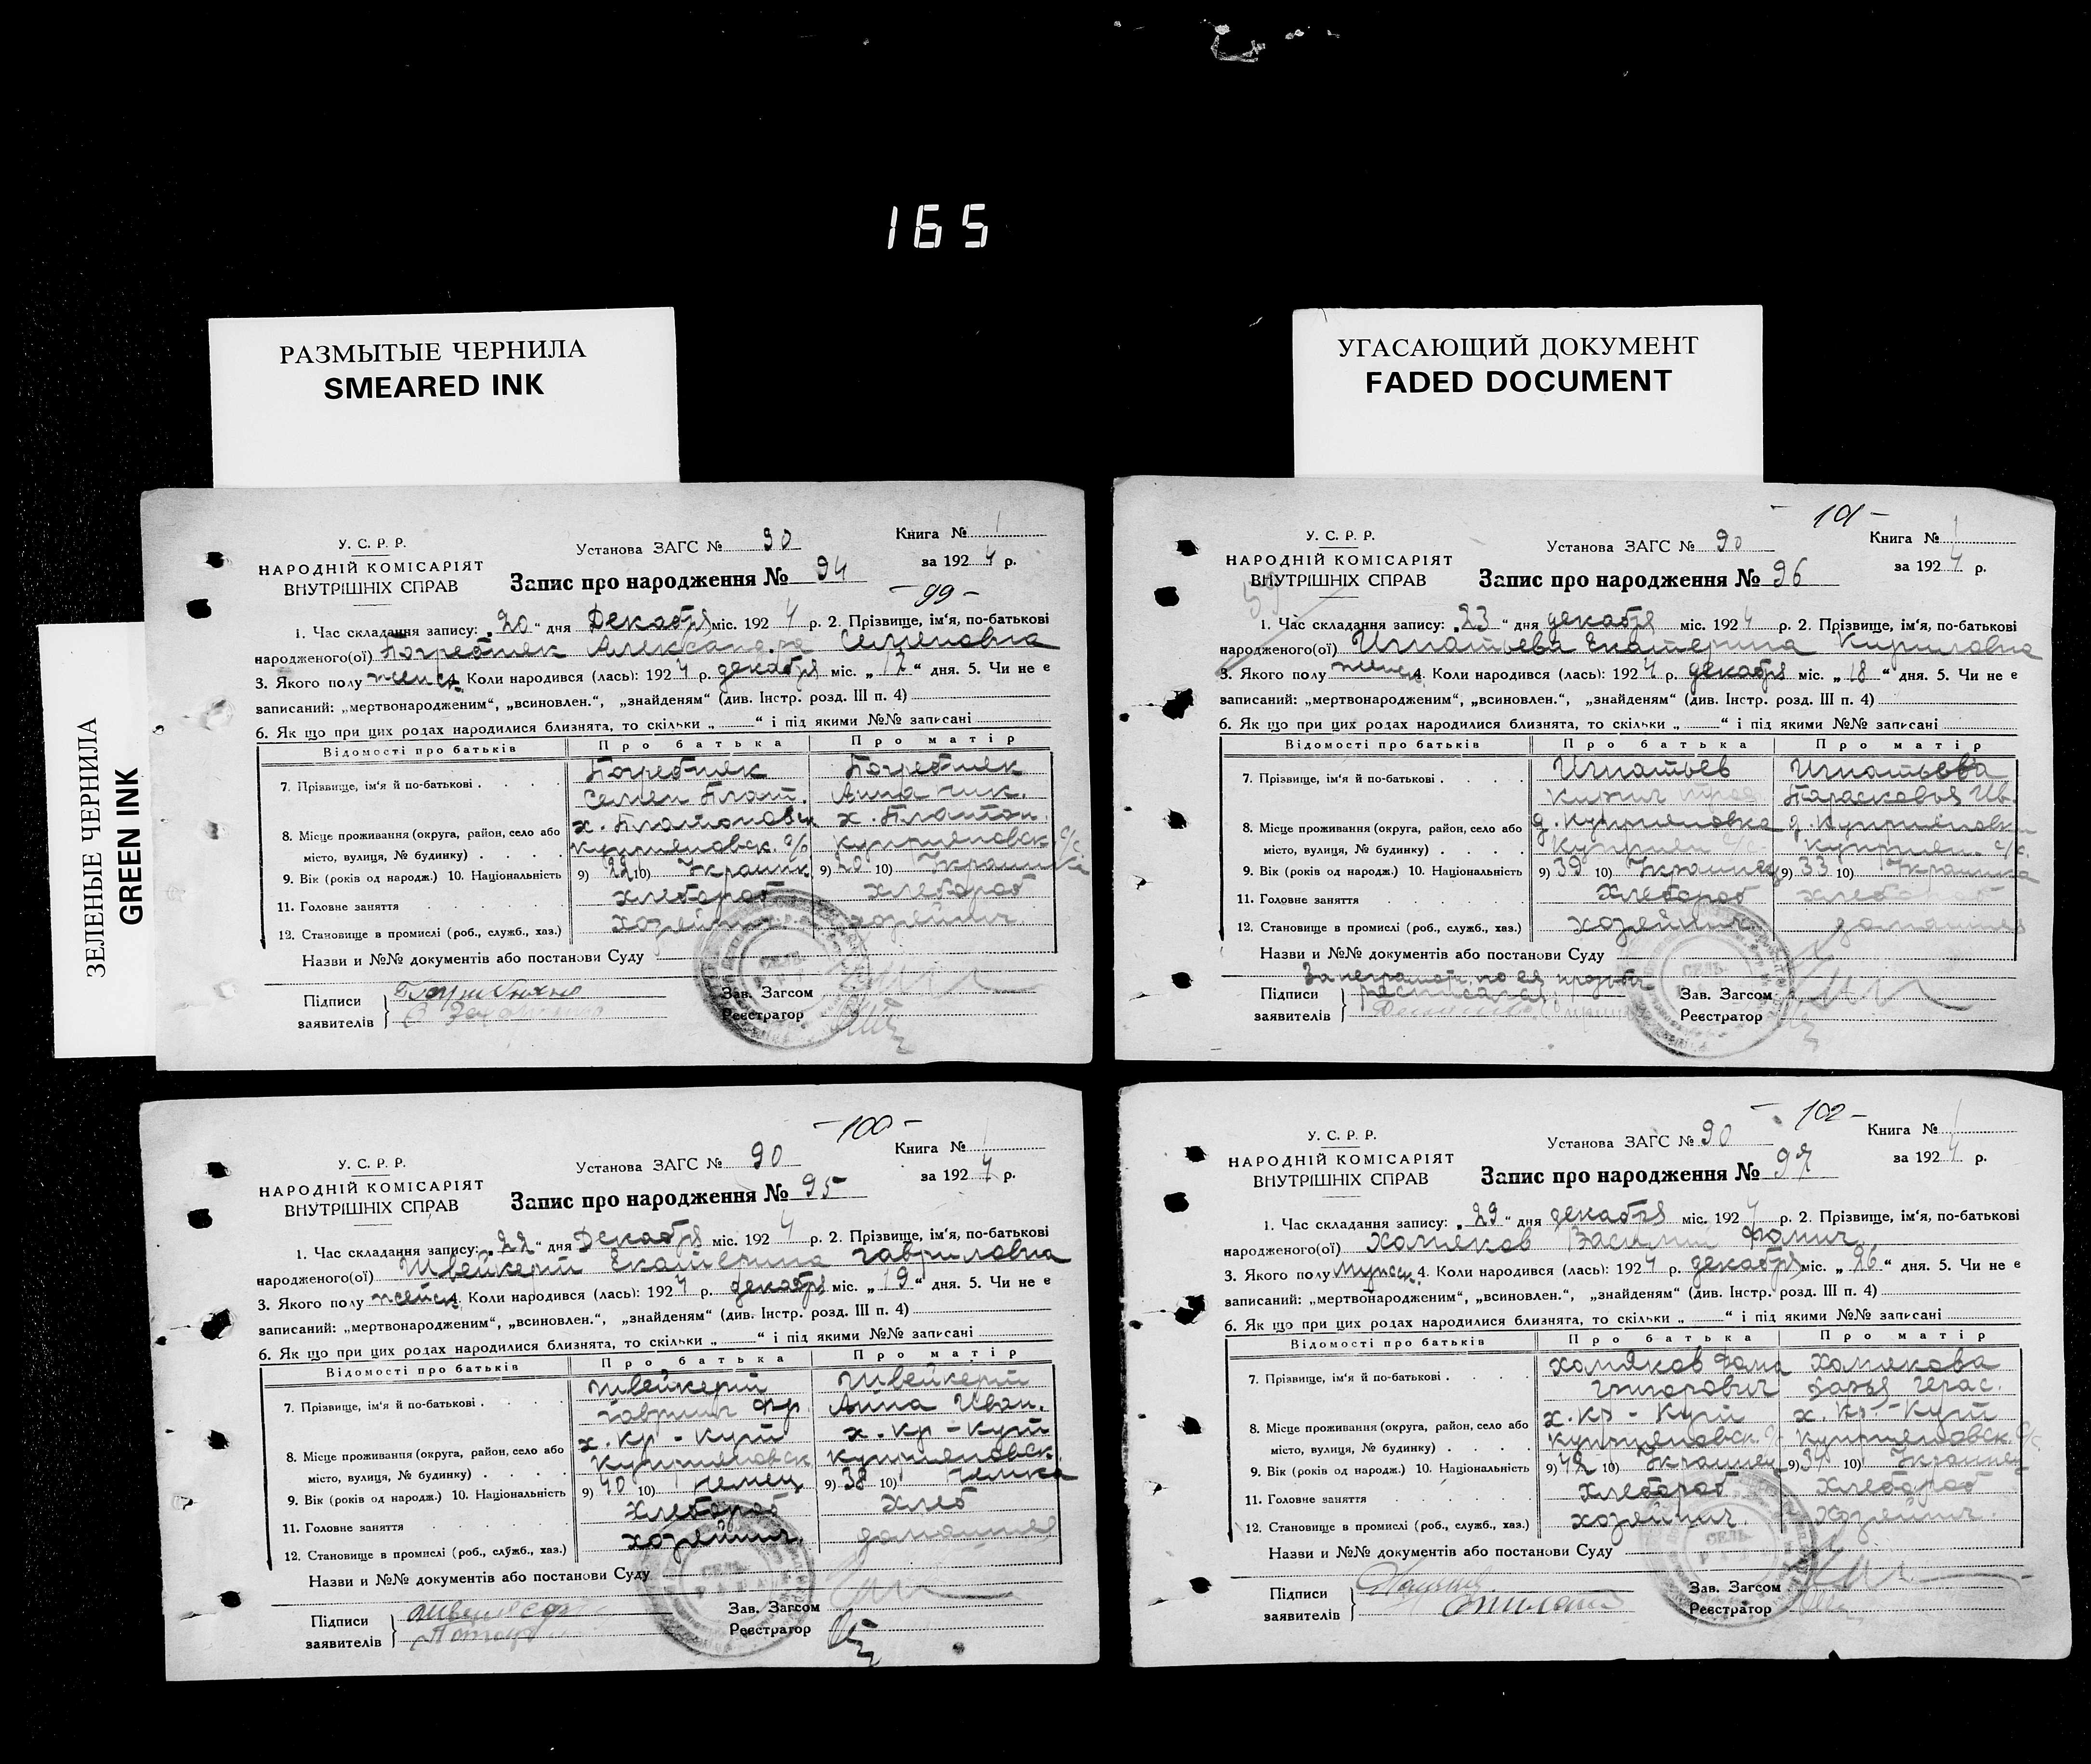 165
РАЗМЫТЫЕ ЧЕРНИЛА
SMEARED INK
УГАСАЮЩИЙ ДОКУМЕНТ
FADED DOCUMENT
ЗЕЛЕНЫЕ ЧЕРНИЛА
GREEN INK
У. С. Р. Р.
НАРОДНІЙ КОМІСАРІЯТ
ВНУТРІШНІХ СПРАВ
Установа ЗАГС № 90
Книга № 1
Запис про народження № 94
за 1924 р.
- 99 -
1. Час складання запису: „20“ дня Декабря міс. 1924 р. 2. Прізвище, ім'я, по-батькові
народженого(ої) Погребняк Александра Семеновна
3. Якого полу женск. 4. Коли народився (лась): 1924 р. декабря міс. „17“ дня. 5. Чи не є
записаний: „мертвонародженим“, „всиновлен.“, „знайденям“ (див. Інстр. розд. III п. 4)
6. Як що при цих родах народилися близнята, то скільки „ “ і під якими №№ записані
Відомості про батьків Про батька Про матір
7. Прізвище, ім'я й по-батькові Погребняк Погребняк
Семен Плат. Анна Ник.
8. Місце проживання (округа, район, село або х. Платоновск х. Платон.
місто, вулиця, № будинку) Куприяновск. с/с Куприяновск с/с
9. Вік (років од народж.) 10. Національність 9) 22 10) Украинк 9) 20 10) Украинка
11. Головне заняття хлебороб хлебороб
12. Становище в промислі (роб., служб., хаз.) хозяйнич. хозяйнич.
Назви и №№ документів або постанови Суду
Підписи
заявителів
Зав. Загсом
Реєстратор
У. С. Р. Р.
НАРОДНІЙ КОМІСАРІЯТ
ВНУТРІШНІХ СПРАВ
- 101 -
Установа ЗАГС № 90
Книга № 1
Запис про народження № 96
за 1924 р.
1. Час складання запису: „23“ дня декабря міс. 1924 р. 2. Прізвище, ім'я, по-батькові
народженого(ої) Игнатьева Екатерина Кириловна
3. Якого полу женск. 4. Коли народився (лась): 1924 р. декабря міс. „18“ дня. 5. Чи не є
записаний: „мертвонародженим“, „всиновлен.“, „знайденям“ (див. Інстр. розд. III п. 4)
6. Як що при цих родах народилися близнята, то скільки „ “ і під якими №№ записані
Відомості про батьків Про батька Про матір
7. Прізвище, ім'я й по-батькові Игнатьев Игнатьева
Кирил Парасковья Ив.
8. Місце проживання (округа, район, село або д. Куприяновка д. Куприяновка
місто, вулиця, № будинку) Куприян с/с Куприян. с/с.
9. Вік (років од народж.) 10. Національність 9) 39 10) Украинец 9) 33 10) Украинка
11. Головне заняття хлебороб хлебороб
12. Становище в промислі (роб., служб., хаз.) хозяйнич. домашняя
Назви и №№ документів або постанови Суду
За неграмот. по ея прозьбе
Підписи расписался
заявителів
Зав. Загсом
Реєстратор
У. С. Р. Р.
НАРОДНІЙ КОМІСАРІЯТ
ВНУТРІШНІХ СПРАВ
- 100 -
Установа ЗАГС № 90
Книга № 1
Запис про народження № 95
за 1924 р.
1. Час складання запису: „22“ дня Декабря міс. 1924 р. 2. Прізвище, ім'я, по-батькові
народженого(ої) Швейкерт Екатерина Гавриловна
3. Якого полу женск. 4. Коли народився (лась): 1924 р. декабря міс. „19“ дня. 5. Чи не є
записаний: „мертвонародженим“, „всиновлен.“, „знайденям“ (див. Інстр. розд. III п. 4)
6. Як що при цих родах народилися близнята, то скільки „ “ і під якими №№ записані
Відомості про батьків Про батька Про матір
7. Прізвище, ім'я й по-батькові Швейкерт Швейкерт
Гавриил Фр. Анна Иван.
8. Місце проживання (округа, район, село або х. Кр - Кут х. Кр - Кут
місто, вулиця, № будинку) Куприяновск Куприяновск.
9. Вік (років од народж.) 10. Національність 9) 40 10) Немец 9) 38 10) Немка
11. Головне заняття хлебороб хлеб
12. Становище в промислі (роб., служб., хаз.) хозяйнич. домашняя
Назви и №№ документів або постанови Суду
Підписи
заявителів
Зав. Загсом
Реєстратор
У. С. Р. Р.
НАРОДНІЙ КОМІСАРІЯТ
ВНУТРІШНІХ СПРАВ
- 102 -
Установа ЗАГС № 90
Книга № 1
Запис про народження № 97
за 1924 р.
1. Час складання запису: „29“ дня декабря міс. 1924 р. 2. Прізвище, ім'я, по-батькові
народженого(ої) Хомяков Василий Фомич
3. Якого полу мужск. 4. Коли народився (лась): 1924 р. декабря міс. „26“ дня. 5. Чи не є
записаний: „мертвонародженим“, „всиновлен.“, „знайденям“ (див. Інстр. розд. III п. 4)
6. Як що при цих родах народилися близнята, то скільки „ “ і під якими №№ записані
Відомості про батьків Про батька Про матір
7. Прізвище, ім'я й по-батькові Хомяков Фома Хомякова
Григорович Герас.
8. Місце проживання (округа, район, село або х. Кр - Кут х. Кр. - Кут
місто, вулиця, № будинку) Куприяновск. с/с Куприяновск. с/с
9. Вік (років од народж.) 10. Національність 9) 42 10) Украинец 9) 34 10) Украинец
11. Головне заняття хлебороб хлебороб
12. Становище в промислі (роб., служб., хаз.) хозяйнич. хозяйнич.
Назви и №№ документів або постанови Суду
Підписи
заявителів
Зав. Загсом
Реєстратор